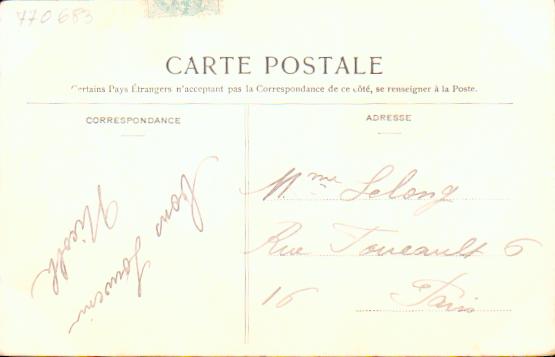 770683
CARTE POSTALE
Certains Pays Étrangers n'acceptant pas la Correspondance de ce côté, se renseigner à la Poste.
CORRESPONDANCE
Bons
Nicole
ADRESSE
Mme Lelong
Rue Foucault 6
16 Paris